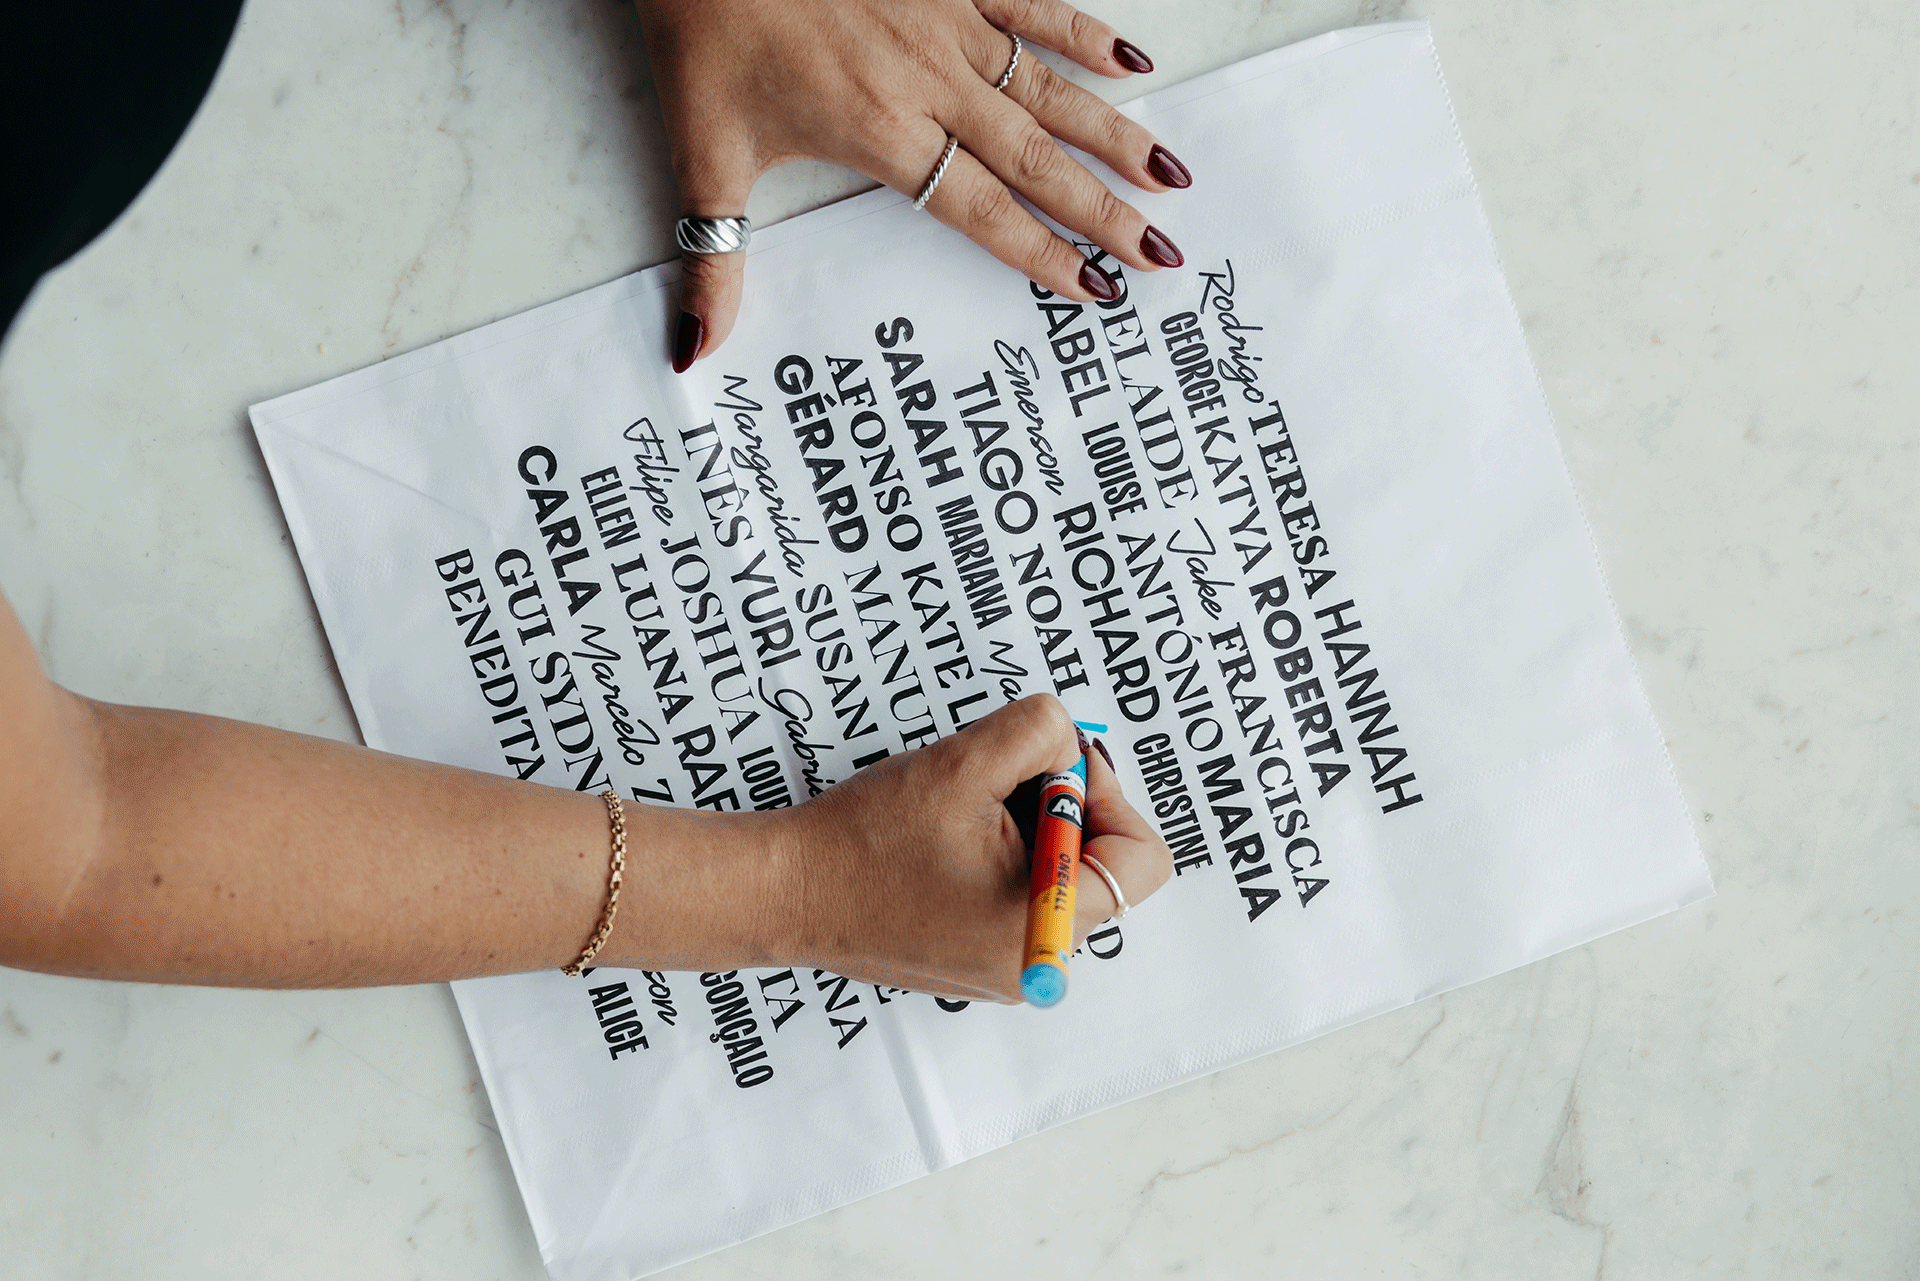 Rodrigo TERESA HANNAH
GEORGE KATYA ROBERTA
ADELAIDE Jake FRANCISCA
SABEL LOUISE ANTÓNIO MARIA
Emerson RICHARD CHRISTINE
TIAGO NOAH
SARAH MARIANA
AFONSO KATE
GÉRARD
Margarida SUSAN
INÊS YURI
Filipe JOSHUA
ELLEN LUANA
CARLA Marcelo GONÇALO
GUI
BENEDITA ALICE
ONE4ALL